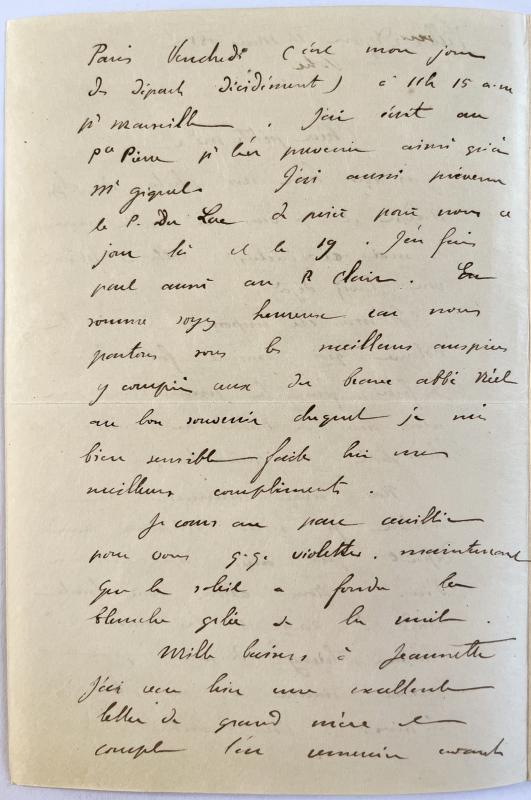 Paris Vendredi (c'est mon jour
de départ décidément) à 11h 15 a.m
pr Marseille. J'ai écrit au
Pierre pr l'en prévenir ainsi qu'à
Mr J'ai aussi prévenu
le P. Du Lac de prier pour nous ce
jour là et le 19. J'en fais
part aussi au P. Clair. En
somme soyez heureuse car nous
partons sous les meilleurs auspices
y compris ceux du brave abbé
au bon souvenir duquel je suis
bien sensible faites lui mes
meilleurs compliments.
Je cours au parc cueillir
pour vous q.q. violettes. maintenant
que le soleil a fondu la
blanche gelée de la nuit.
Mille baisers à Jeannette
J'ai reçu hier une excellente
lettre de grand mère et
compte l'en remercier avant